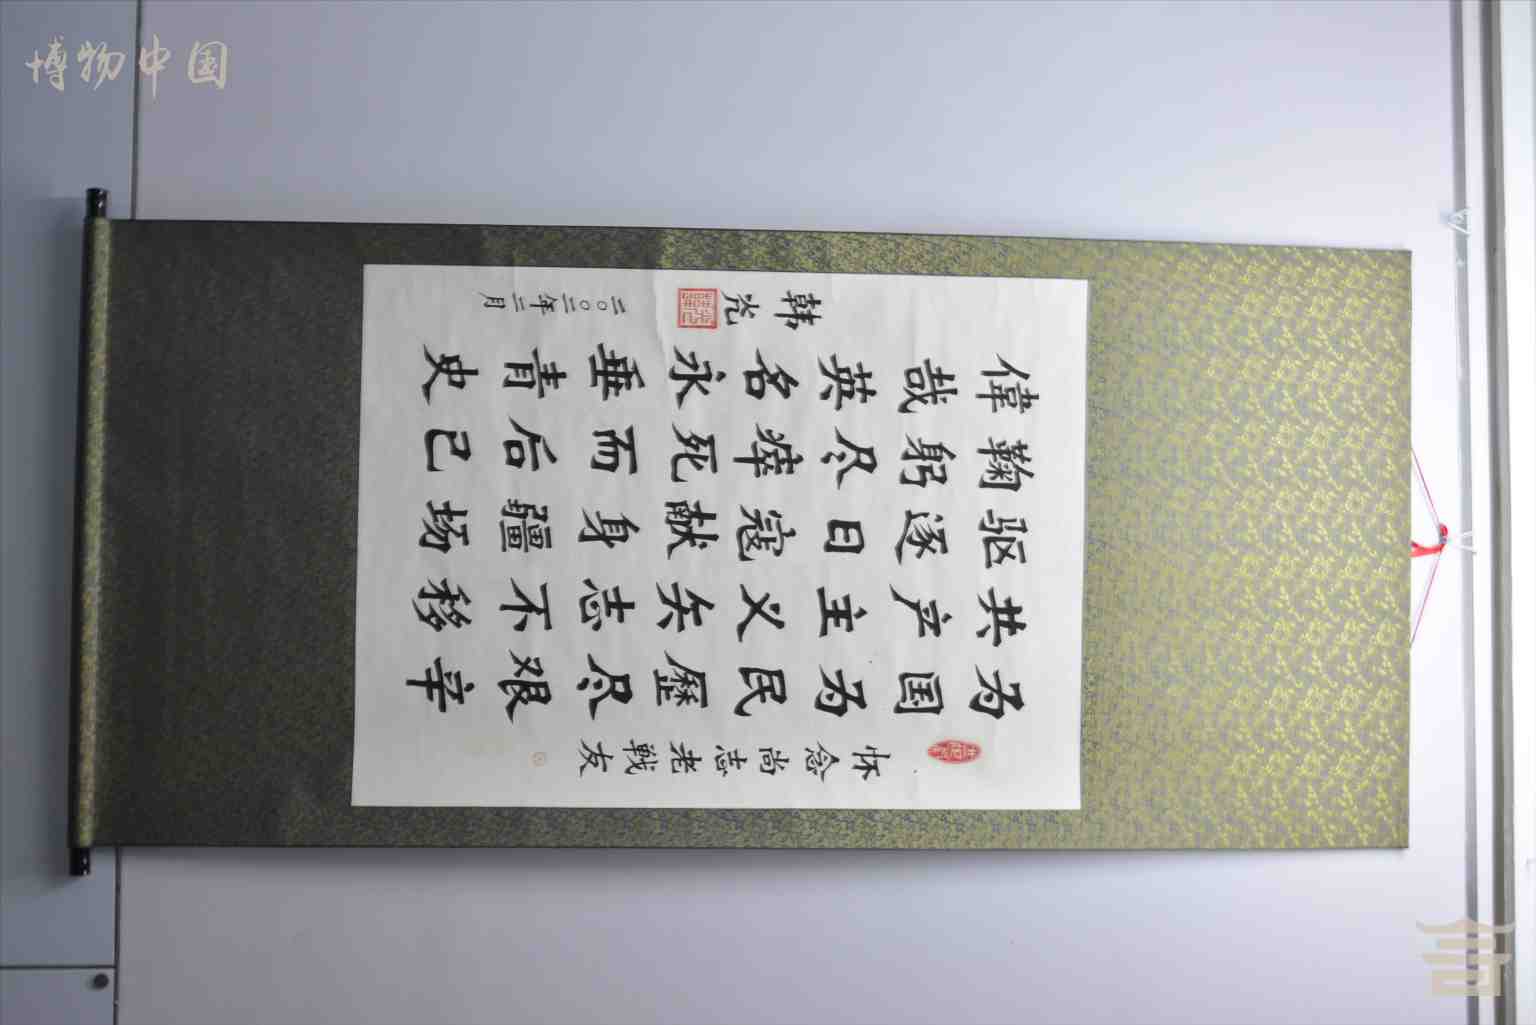 怀念尚志老戰友
为国为民歷尽艰辛
共产主义矢志不移
驱逐日寇献身疆场
鞠躬尽瘁死而后已
偉哉英名永垂青史
韩光
二〇〇二年二月
博物中国